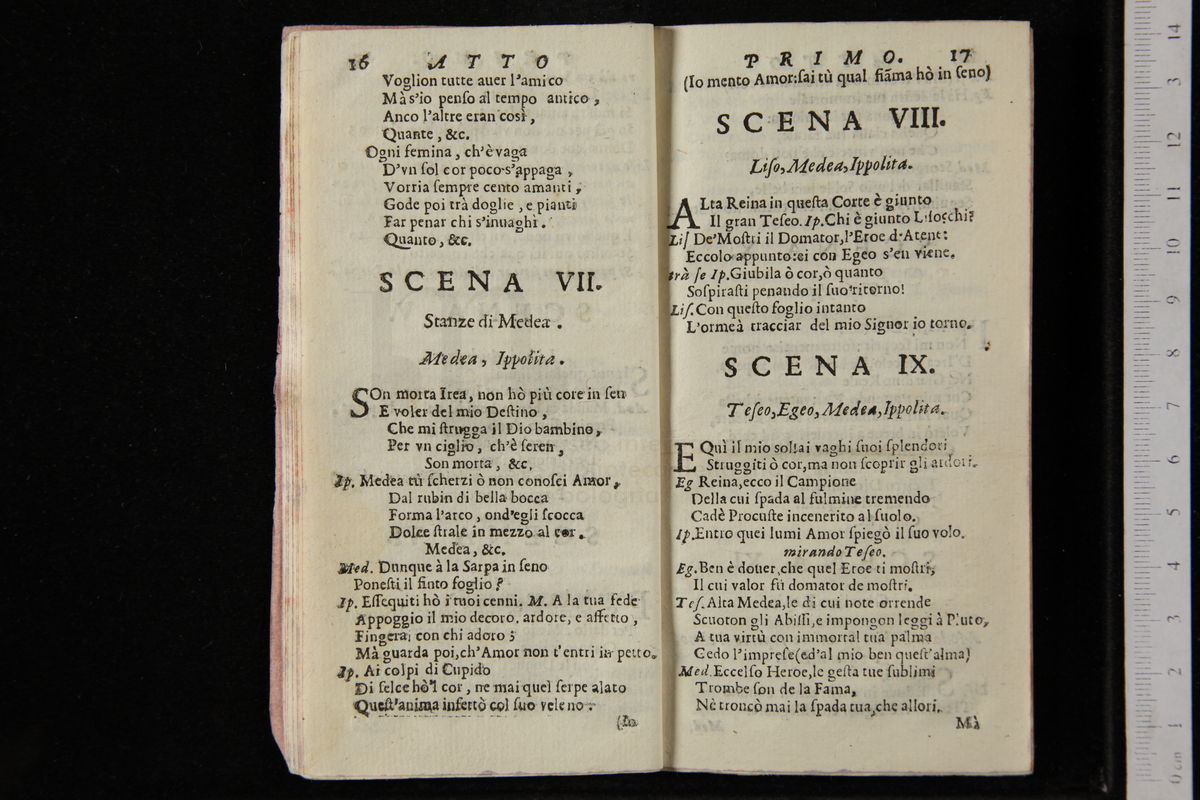 16 ATTO
Voglion tutte auer l'amico
Mà s'io penſo al tempo antico,
Anco l'altre eran così,
Quante, &c.
Ogni femina, ch'è vaga
D'vn ſol cor poco s'appaga,
Vorria ſempre cento amanti,
Gode poi trà doglie, e pianti
Far penar chi s'inuaghì.
Quanto, &c.
SCENA VII.
Stanze di Medea.
Medea, Ippolita.
SOn morta Irea, non hò più core in ſen
E voler del mio Deſtino,
Che mi ſtrugga il Dio bambino,
Per vn ciglio, ch'è ſeren,
Son morta, &c.
Ip. Medea tù ſcherzi ò non conoſci Amor,
Dal rubin di bella bocca
Forma l'arco, ond'egli ſcocca
Dolce ſtrale in mezzo al cor.
Medea, &c.
Med. Dunque à la Sarpa in ſeno
Poneſti il finto foglio?
Ip. Eſſequiti hò i tuoi cenni. M. A la tua fede
Appoggio il mio decoro, ardore, e affetto,
Fingerai con chi adoro;
Mà guarda poi, ch'Amor non t'entri in petto.
Ip. Ai colpi di Cupido
Di ſelce hò'l cor, ne mai quel ſerpe alato
Queſt'anima infettò col ſuo veleno.
(Io
PRIMO. 17
(Io mento Amor: ſai tù qual fiãma hò in ſeno)
SCENA VIII.
Liſo, Medea, Ippolita.
ALta Reina in queſta Corte è giunto
Il gran Teſeo. Ip. Chi è giunto L'foſchi?
Liſ De' Moſtri il Domator, l'Eroe d'Atene:
Eccolo appunto: ei con Egeo s'en viene.
trà ſe Ip. Giubila ò cor, ò quanto
Soſpiraſti penando il ſuo ritorno!
Liſ. Con queſto foglio intanto
L'orme à tracciar del mio Signor io torno.
SCENA IX.
Teſeo, Egeo, Medea, Ippolita.
E Quì il mio sol! ai vaghi ſuoi ſplendori
Struggiti ò cor, ma non ſcoprir gli ardori.
Eg Reina, ecco il Campione
Della cui ſpada al fulmine tremendo
Cadè Procuſte incenerito al ſuolo.
Ip. Entro quei lumi Amor ſpiegò il ſuo volo.
mirando Teſeo.
Eg. Ben è douer, che quel Eroe ti moſtri,
Il cui valor fù domator de moſtri.
Teſ. Alta Medea, le di cui note orrende
Scuoton gli Abiſſi, e impongon leggi à Pluto,
A tua virtù con immortal tua palma
Cedo l'impreſe (ed'al mio ben queſt'alma)
Med. Eccelſo Heroe, le geſta tue ſublimi
Trombe ſon de la Fama,
Nè troncò mai la ſpada tua, che allori.
Mà